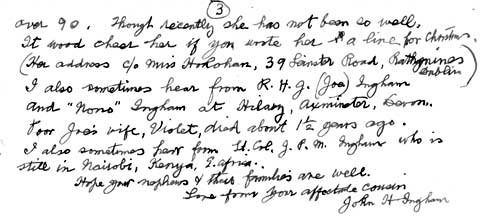 3
over 90. Though recently she has not been so well.
It wood cheer her if you wrote her a line for Christmas.
(Her address c/o Miss Horohan, 39 Leinster Road, Rathmines
Dublin)
I also sometimes hear from R. H. G. (Joe) Ingham
and "Nono" Ingham at Hilary, Axminster, Devon.
Poor Joe's wife, Violet, died about 1½ years ago.
I also sometimes hear from Lt. Col. J. P. M. Ingham who is
still in Nairobi, Kenya, E. Africa.
Hope your nephews & their families are well.
Love from your affectate cousin
John H Ingham